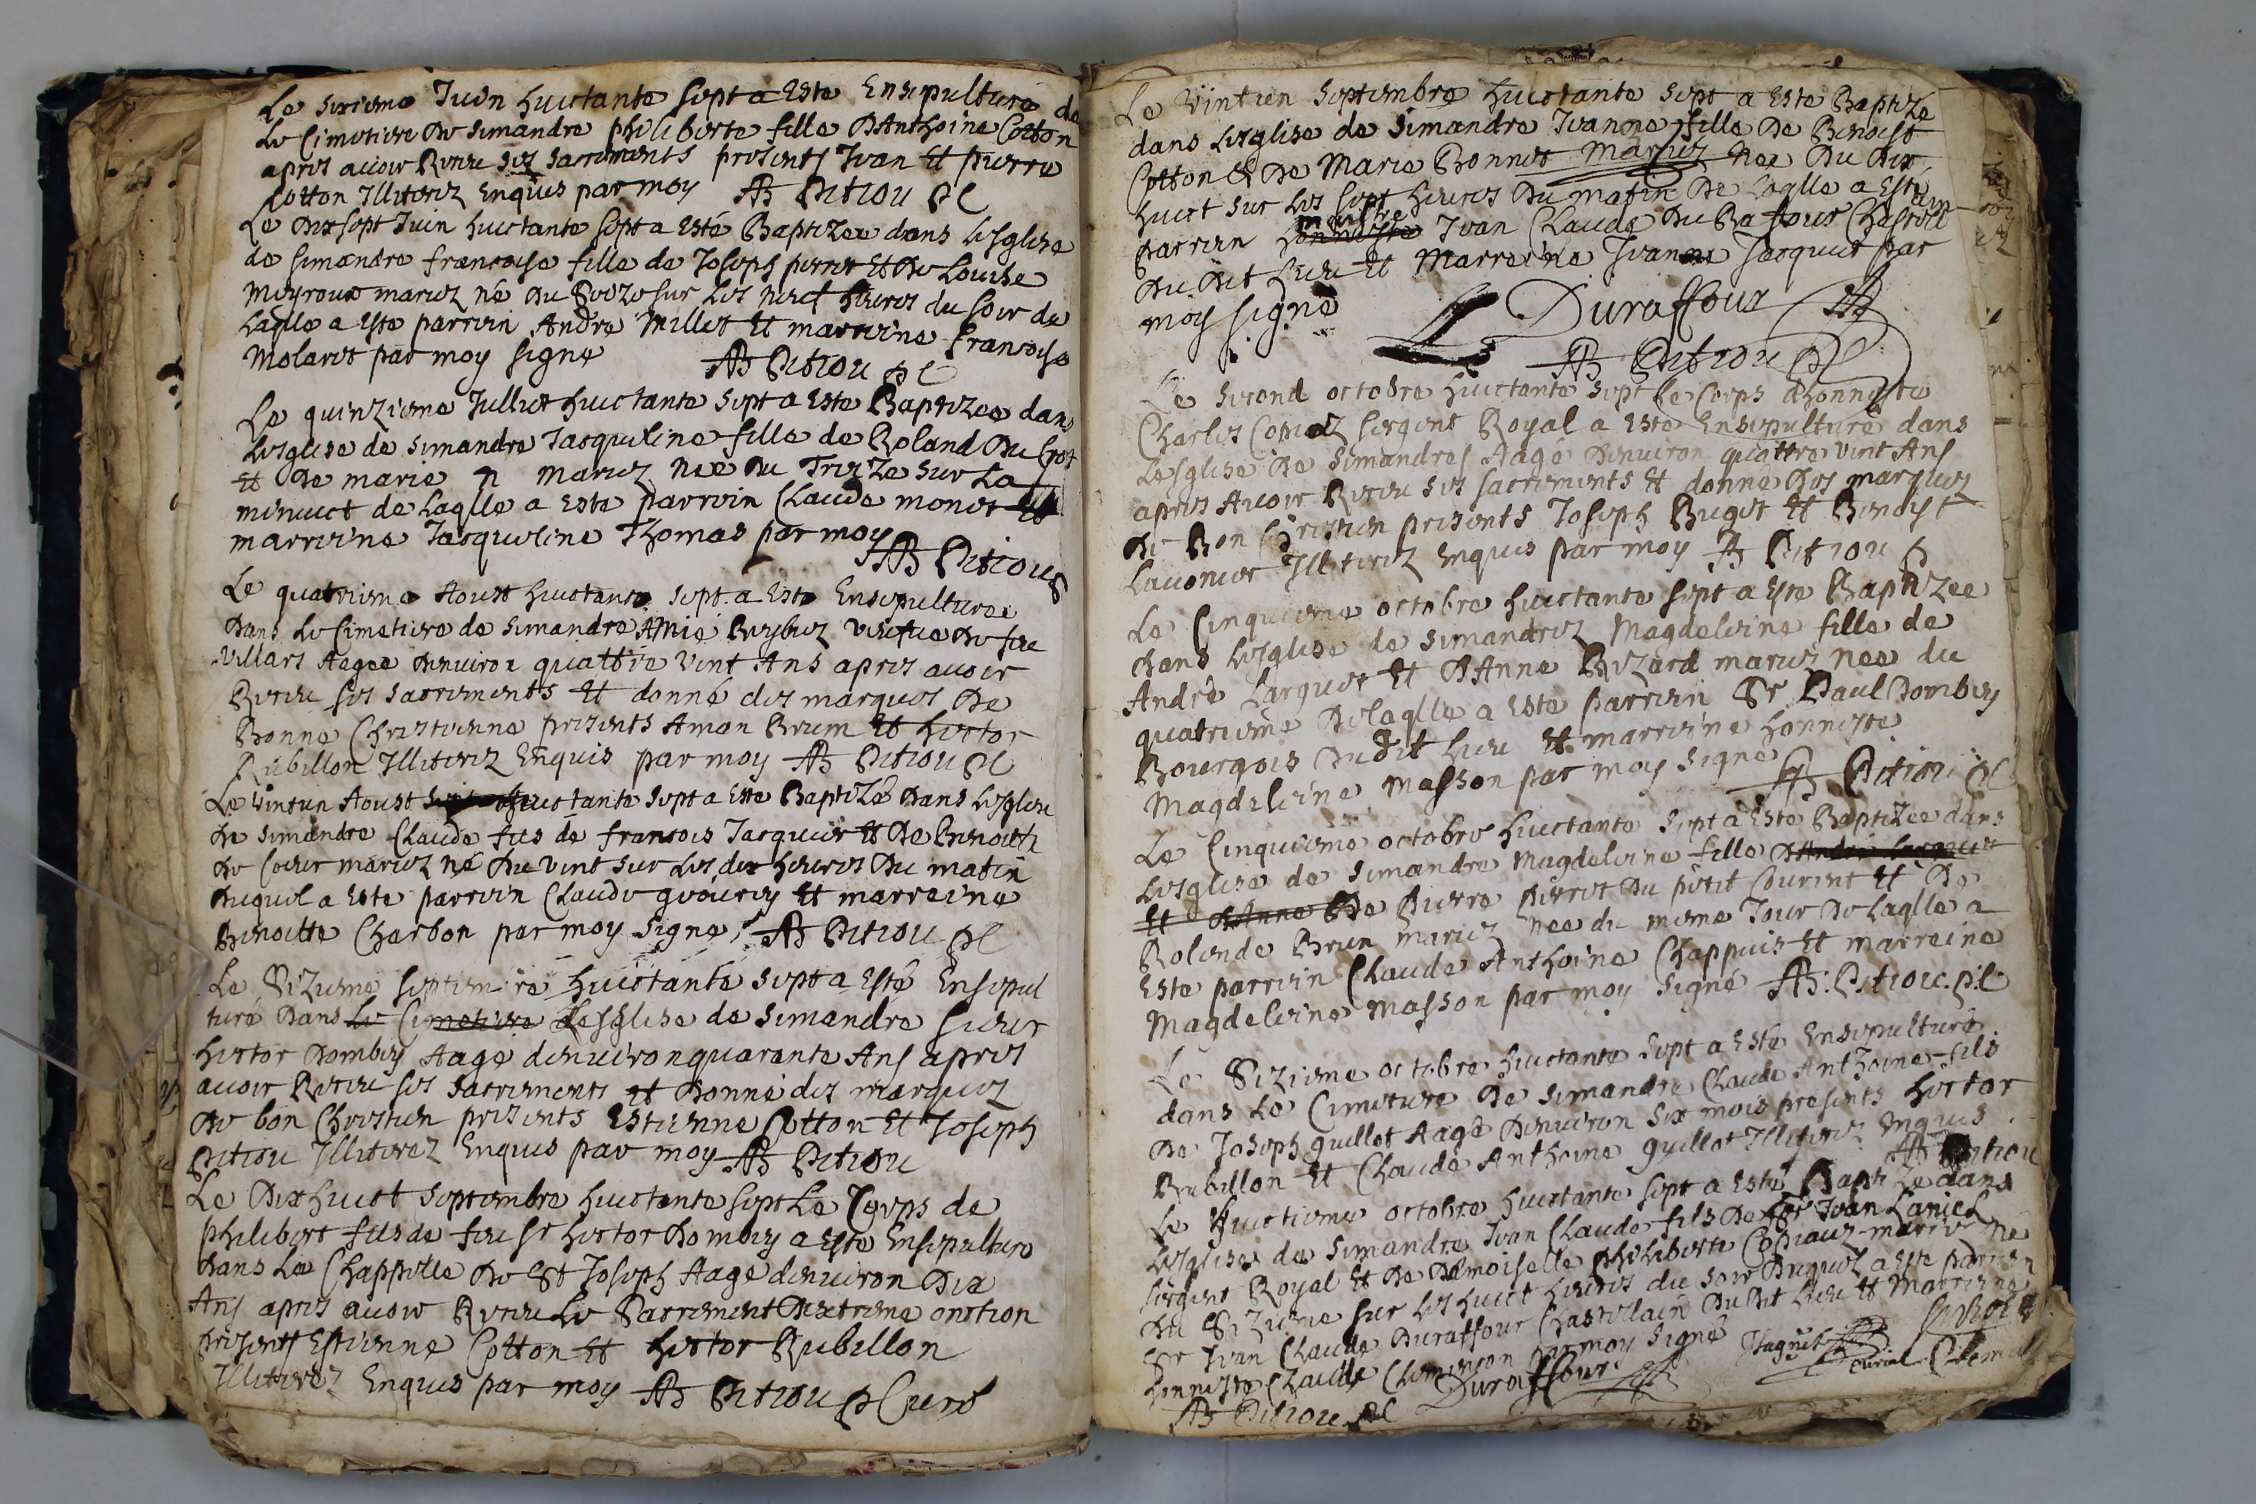 Le sixiesme Juin huictante sept a Este Ensepulturé de
Le Cimetiere De simandre philiberte fille DAnthoine Cotton
apres auoir Receu ses sacrements presents Jean Et pierre
Cotton Illiterez Enquis par moy AB Pitiou PC
Le Dixsept Juin huictante sept a Esté Baptizee dans Lesglise
de simandre francoise fille de Joseph perret Et De Louise
moyroux mariez né Du Seize sur Les neuf heures du soir de
Laqlle a Este parrein Andre Millet Et marreine francoise
Molaret par moy signe AB Pitiou PC
Le quinziesme Julliet huictante sept a Este Baptizee dans
Lesglise de simandre Jacqueline fille de Roland Du Crot
Et De marie n mariez nee Du Treize sur La
minuict de Laqlle a Este parrein Claude monet Et
marreine Jacqueline Thomas par moy
AB Pitiou
Le quatriesme Aoust huictante sept a Este Ensepulturee
Dans Le Cimetiere de simandre Amie veufue De feu
Villars Aagee Denuiron quattre vint Ans apres auoir
Receu ses sacrements Et donné des marques De
Bonne Chrestienne presents Aman Brum Et hector
Rubillon Illiterez Enquis par moy AB Pitiou PC
Le vintun Aoust huictante sept a Este Baptizé Dans Lesglise
De simandre Claude fils de francois Jacquier Et De Benoitte
De Coeur mariez né Du vint sur Les dix heures Du matin
Duquel a Este parrein Claude Et marreine
Benoitte Charbon par moy signe AB Pitiou PC
Le Sizieme septembre huictante sept a Esté Ensepul
turé Dans Le Cimetiere Lesglise de simandre sieur
hector Dombey Aagé denuiron quarante Ans apres
auoir Receu ses sacrements et Donné des marques
De bon Chrestien presents Estienne Cotton Et Joseph
Pitiou Illiterez Enquis par moy AB Pitiou
Le Dixhuict septembre huictante sept Le Corps de
philibert fils de feu sr hector Dombey a Este Ensepulturé
Dans La Chappelle De St Joseph Aage denuiron Dix
Ans apres auoir Receu Le Sacrement Dextreme onction
presents Estienne Cotton Et hector Rubillon
Illiterez Enquis par moy AB Pitiou P Curé
Le vintun septembre huictante sept a Este Baptizé
dans Lesglise de simandre Jeanne fille De Benoist
Cotton Et De Marie Bonnet mariez Nee Du Dix
huict sur les sept heures Du matin De Laqlle a Esté
parrein honneste maistre Jean Claude Du Raffour Chastelain
Du Dit Lieu Et Marreine Jeanne Jacquet par
moy signe
Duraffour
AB Pitiou PC
Le second octobre huictante sept Le Corps dhonneste
Charles sergent Royal a Este Ensepulturé dans
Lesglise De simandres Aagé Denuiron quattre vint Ans
apres Auoir Receu ses sacrements Et donné Des marques
De Bon Chrestien presents Joseph Buget Et Benoyst
Lauenier Illiterez Enquis par moy AB Pitiou P
Le Cinquiesme octobre huictante sept a Este Baptizee
dans Lesglise de simandrez Magdeleine fille de
André Larguet Et DAnne mariez nee du
quatriesme De Laqlle a Este parrein Sr Paul Dombey
Bourgois Dudit Lieu Et marreine honneste
Magdeleine Masson par moy signe AB Pitiou PC
Le Cinquiesme octobre huictante sept a Este Baptizee dans
Lesglise de simandre Magdeleine fille DAndré Larguet
Et DAnne De Pierre perret Du petit Courent Et De
Rolende Brun mariez nee du mesme Jour De Laqlle a
Este parrein Claude Anthoine Chappuis Et marreine
Magdeleine Masson par moy signé AB: Pitiou: P:C
Le Siziesme octobre huictante sept a Esté Ensepulturé
dans Le Cimetiere De simandre Claude Anthoine fils
De Joseph guillot Aagé Denuiron six mois presents hector
Rubillon Et Claude Anthoine guillot Illiterez Enquis
AB Pitiou
Le huictiesme octobre huictante sept a Esté Baptizé dans
Lesglise de simandre Jean Claude fils De Sr Jean Laniel
sergent Royal Et De Demoiselle philiberte mariez né
Du Siziesme sur Les huict heures du soir Duquel a Este parrein
Sr Jean Claude Duraffour Chastelain Dudit Lieu Et Marreine
honneste par moy signé
Duraffour
AB Pitiou PC